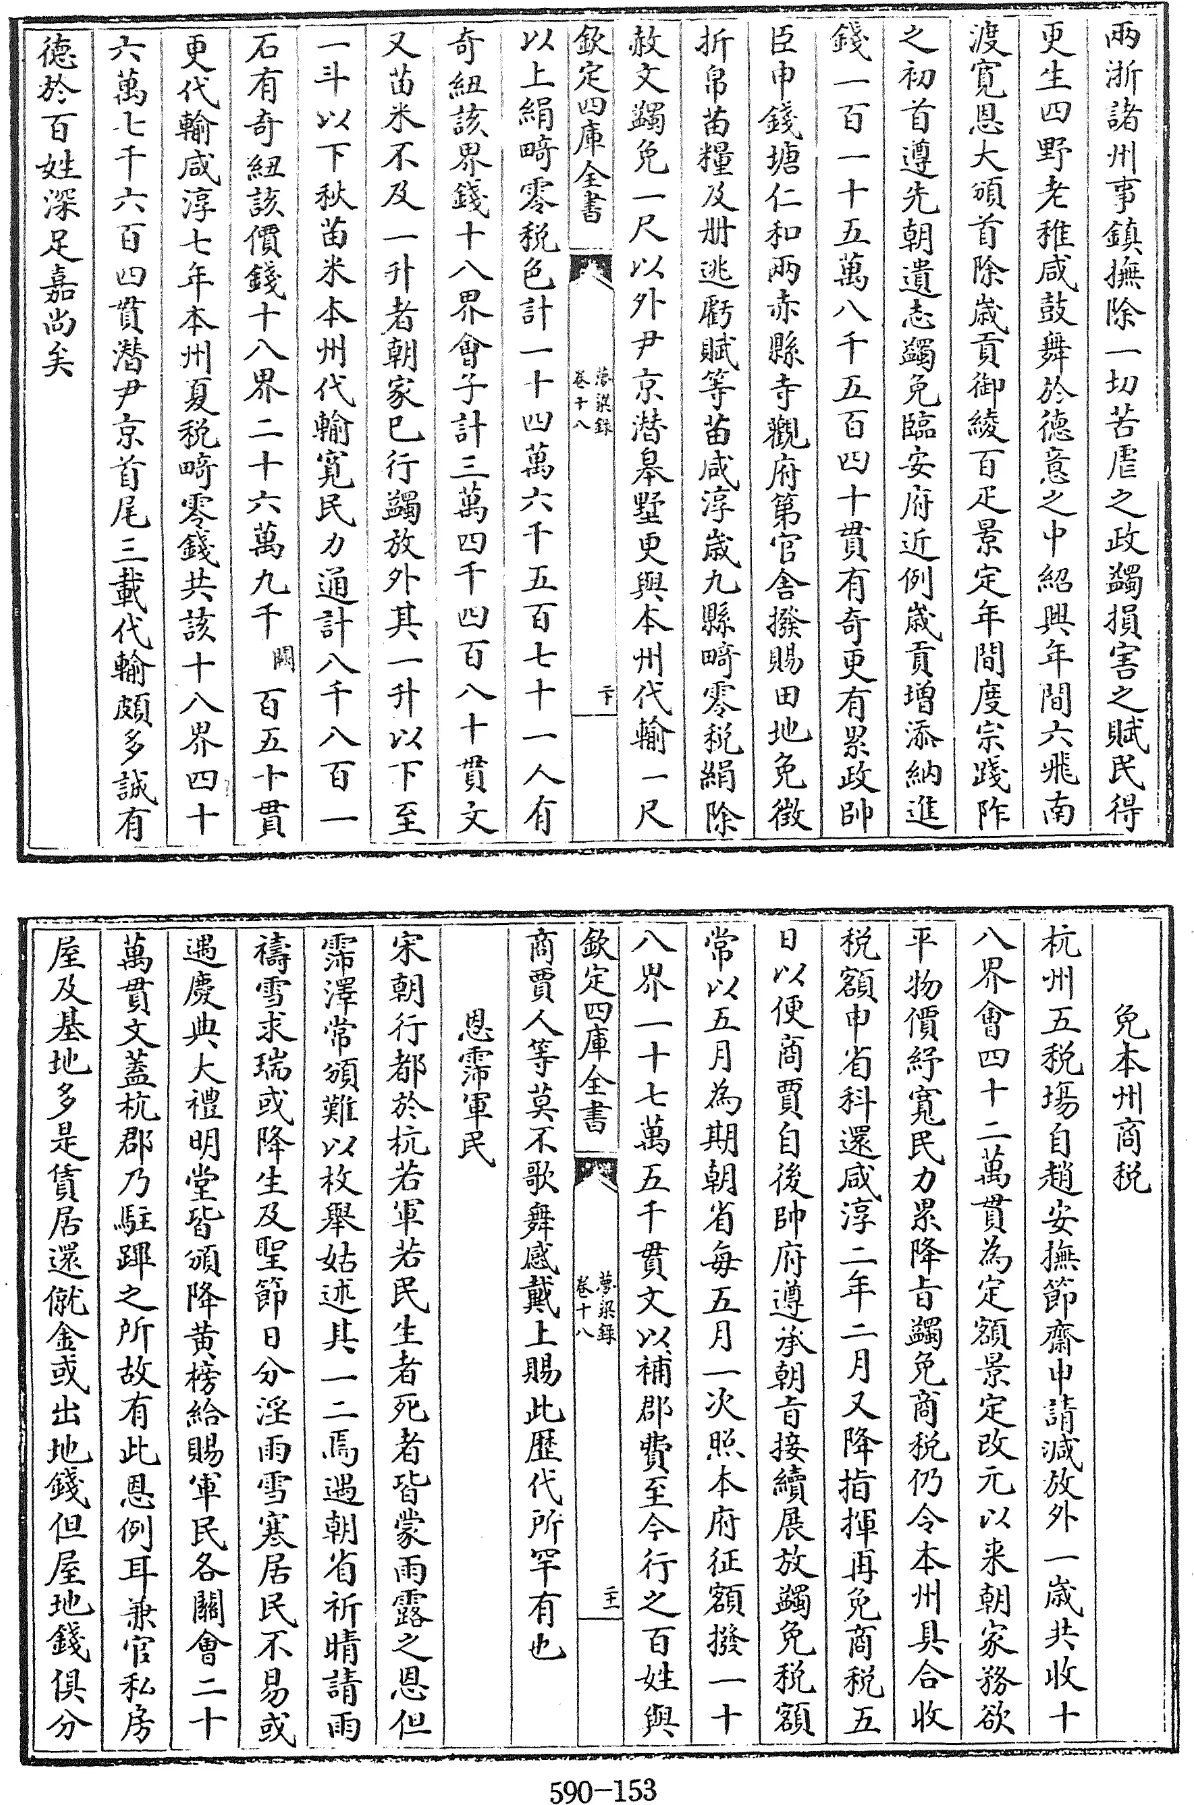 兩浙諸州事鎮撫除一切苦虐之政蠲損害之賦民得
更生四野老稚咸鼓舞於德意之中紹興年間六飛南
渡寛恩大頒首除歲貢御綾百疋景定年間度宗踐阼
之初首遵先朝遺志蠲免臨安府近例歲貢增添納進
錢一百一十五萬八千五百四十貫有奇更有累政帥
臣申錢塘仁和兩赤縣寺觀府第官舍撥賜田地免徴
折帛苗糧及册逃虧賦等苗咸淳歲九縣畸零税絹除
赦文蠲免一尺以外尹京潛皋墅更與本州代輸一尺
欽定四庫全書
夢粱録
卷十八
二十
以上絹畸零税色計一十四萬六千五百七十一人有
奇紐該界錢十八界會子計三萬四千四百八十貫文
又苗米不及一升者朝家已行蠲放外其一升以下至
一斗以下秋苗米本州代輸寛民力通計八千八百一
石有奇紐該價錢十八界二十六萬九千闕百五十貫
更代輸咸淳七年本州夏税畸零錢共該十八界四十
六萬七千六百四貫潛尹京首尾三載代輸頗多誠有
德於百姓深足嘉尚矣
免本州商税
杭州五税場自趙安撫節齋申請減放外一歲共收十
八界會四十二萬貫為定額景定改元以来朝家務欲
平物價紓寛民力累降旨蠲免商税仍令本州具合收
税額申省科還咸淳二年二月又降指揮再免商税五
日以便商賈自後帥府遵承朝旨接續展放蠲免税額
常以五月為期朝省每五月一次照本府征額撥一十
八界一十七萬五千貫文以補郡費至今行之百姓與
欽定四庫全書
夢粱録
卷十八
二十一
商賈人等莫不歌舞感戴上賜此歴代所罕有也
恩霈軍民
宋朝行都於杭若軍若民生者死者皆蒙雨露之恩但
霈澤常頒難以枚舉姑述其一二焉遇朝省祈晴請雨
禱雪求瑞或降生及聖節日分淫雨雪寒居民不易或
遇慶典大禮明堂皆頒降黄榜給賜軍民各關會二十
萬貫文蓋杭郡乃駐蹕之所故有此恩例耳兼官私房
屋及基地多是賃居還僦金或出地錢但屋地錢俱分
590-153